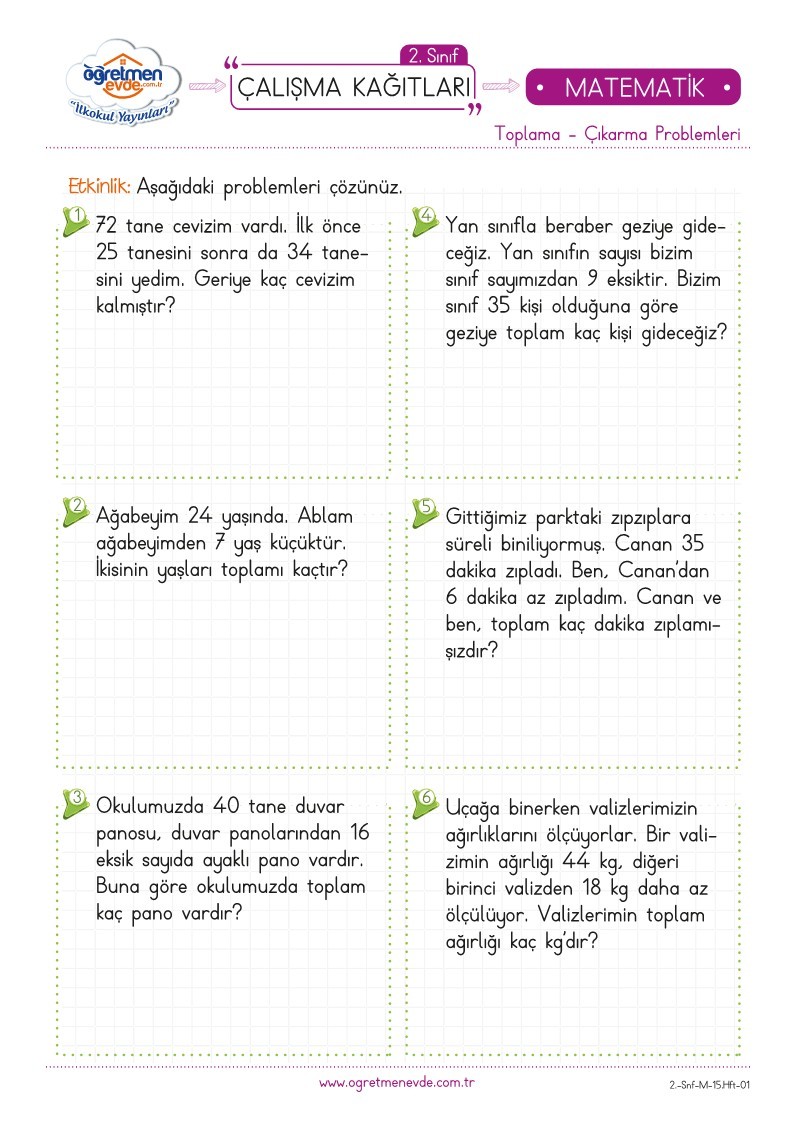 öğretmen
evde.com.tr
"İlkokul Yayınları"
2. Sınıf
“ÇALIŞMA KAĞITLARI”
• MATEMATİK •
Toplama - Çıkarma Problemleri
Etkinlik: Aşağıdaki problemleri çözünüz.
1
72 tane cevizim vardı. İlk önce
25 tanesini sonra da 34 tane-
sini yedim. Geriye kaç cevizim
kalmıştır?
2
Ağabeyim 24 yaşında. Ablam
ağabeyimden 7 yaş küçüktür.
İkisinin yaşları toplamı kaçtır?
3
Okulumuzda 40 tane duvar
panosu, duvar panolarından 16
eksik sayıda ayaklı pano vardır.
Buna göre okulumuzda toplam
kaç pano vardır?
4
Yan sınıfla beraber geziye gide-
ceğiz. Yan sınıfın sayısı bizim
sınıf sayımızdan 9 eksiktir. Bizim
sınıf 35 kişi olduğuna göre
geziye toplam kaç kişi gideceğiz?
5
Gittiğimiz parktaki zıpzıplara
süreli biniliyormuş. Canan 35
dakika zıpladı. Ben, Canan'dan
6 dakika az zıpladım. Canan ve
ben, toplam kaç dakika zıplamı-
şızdır?
6
Uçağa binerken valizlerimizin
ağırlıklarını ölçüyorlar. Bir vali-
zimin ağırlığı 44 kg, diğeri
birinci valizden 18 kg daha az
ölçülüyor. Valizlerimin toplam
ağırlığı kaç kg'dır?
www.ogretmenevde.com.tr
2.-Snf-M-15.Hft-01